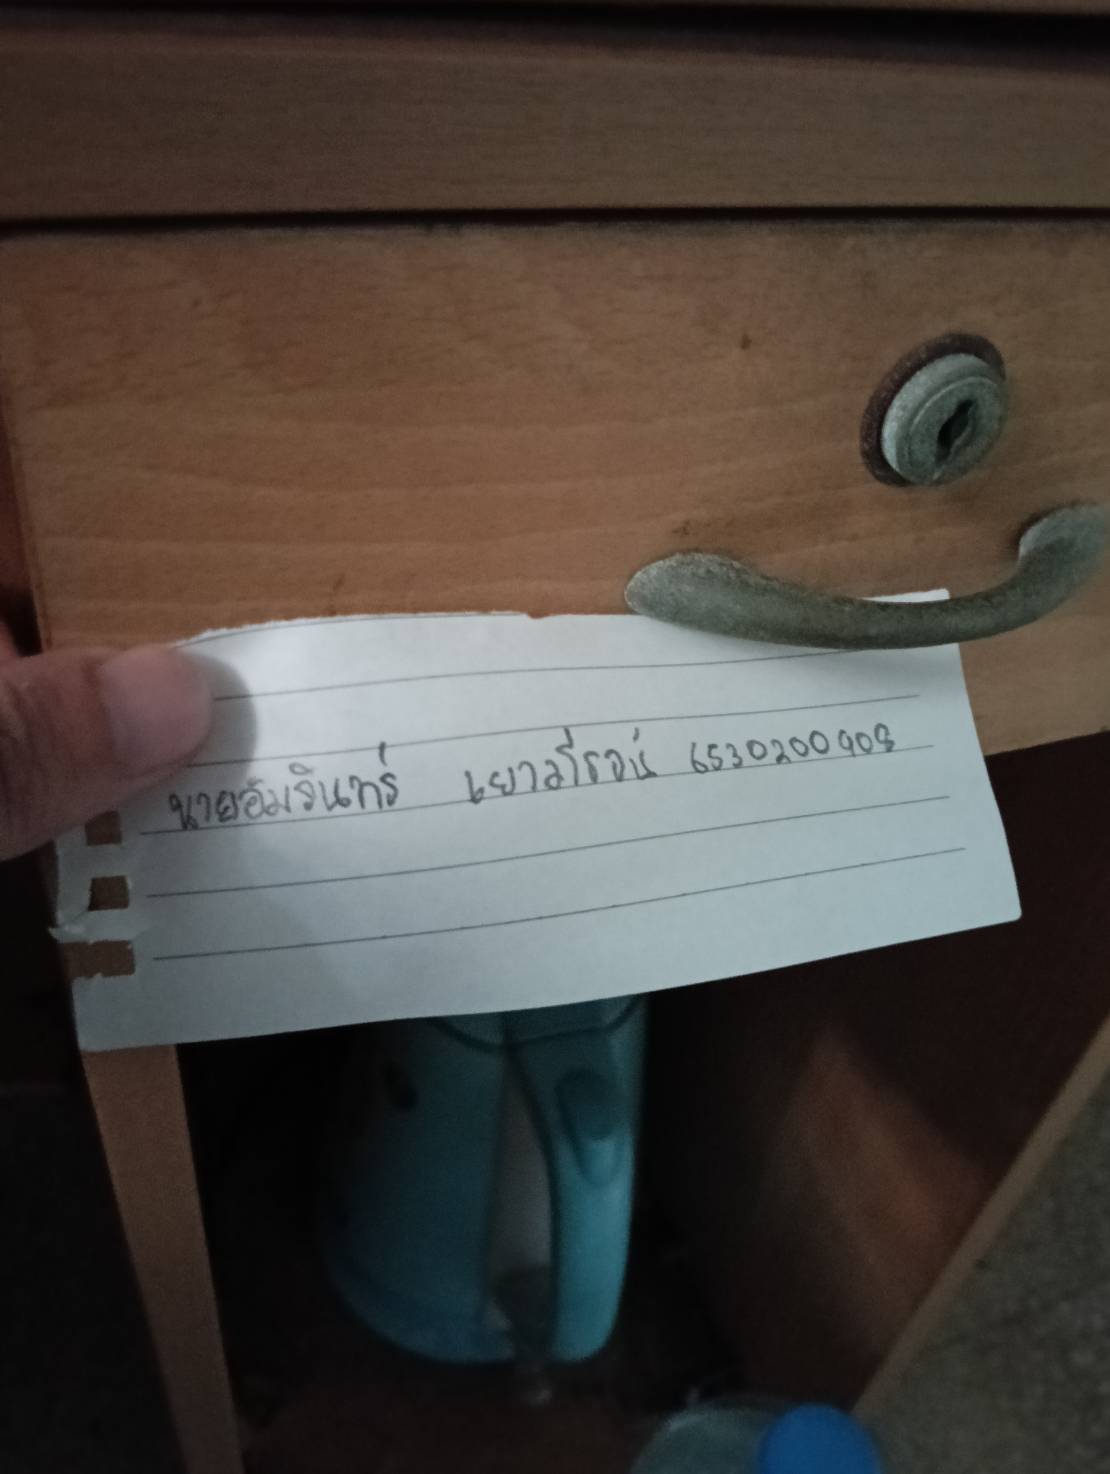 นายอัมรินทร์ เยาวภีรจน์ 6530200908